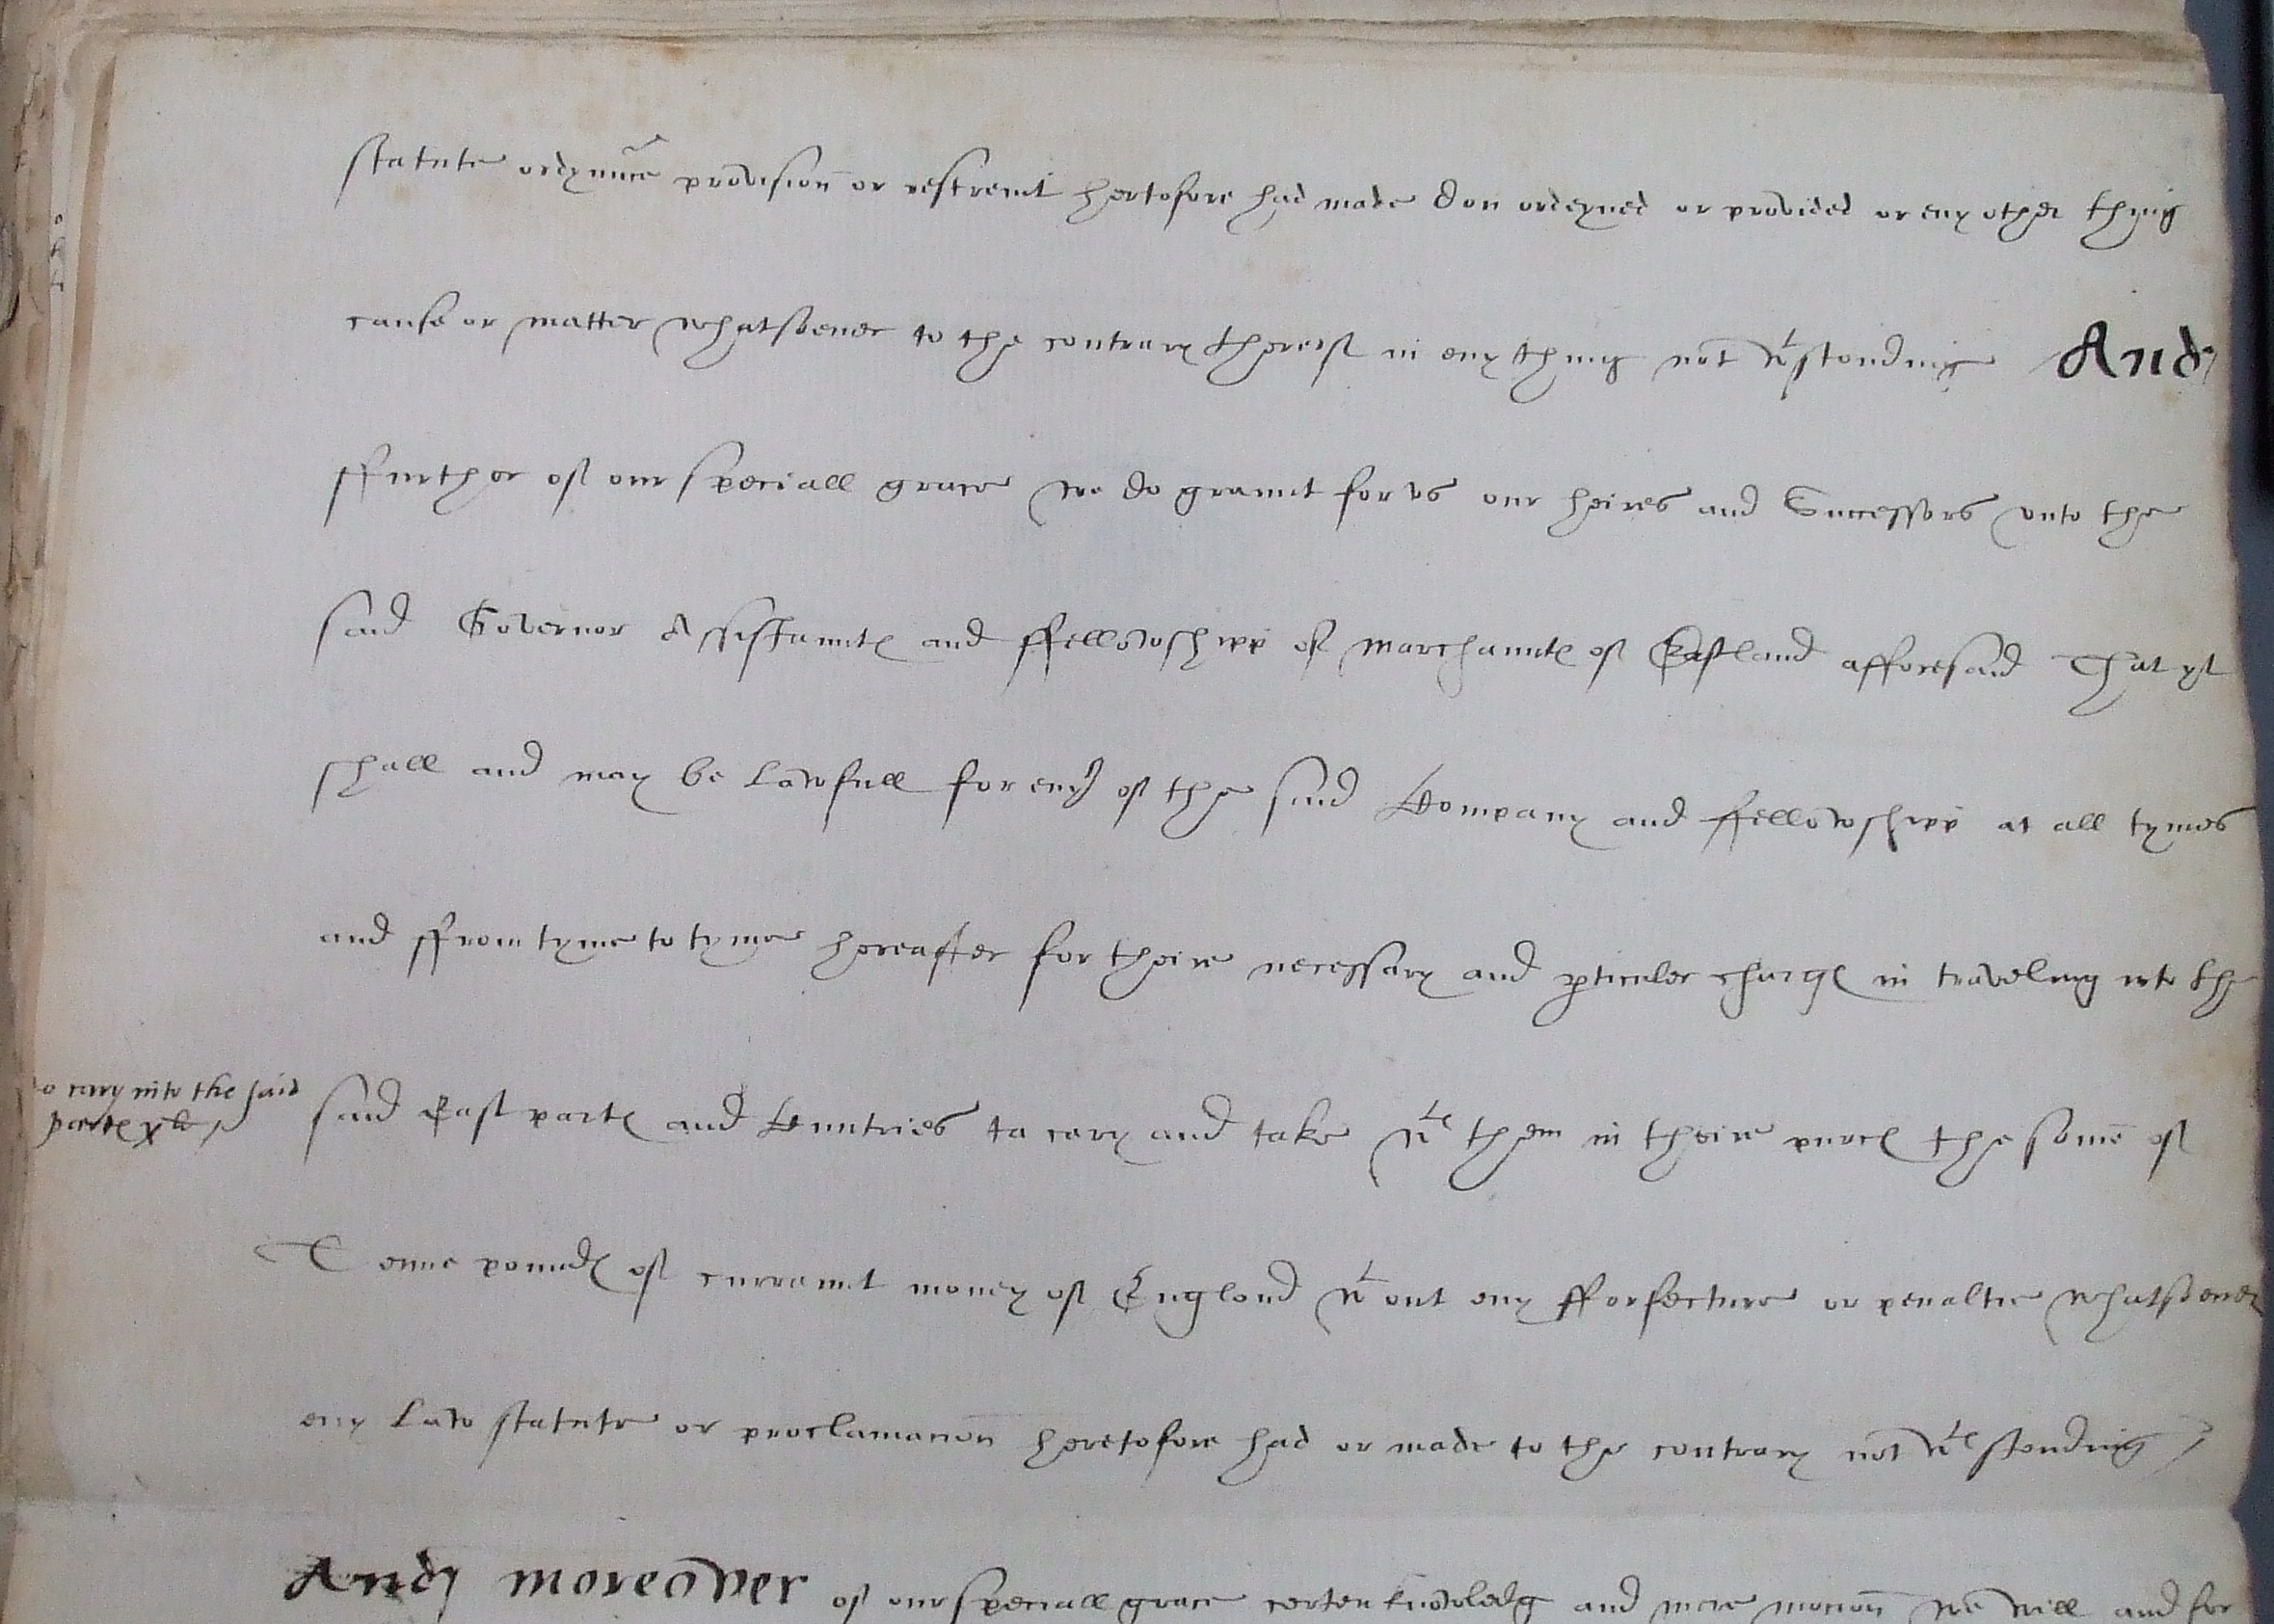 statute ordynnce provision or restreint hertofore had made don ordeyned or provided or eny other thyng
cause or matter whatsoeuer to the contrary thereof in eny thyng not wtstonding And
ffurther of our speciall grace we do graunt for vs our heires and Successors vnto the
said Governor Assistauntes and ffellowshipp of marchauntes of Eastland afforesaid That yt
shall and may be lawfull for eny of the said Company and ffellowshipp at all tymes
and ffrom tyme to tyme hereafter for theire necessary and pticuler charges in traveling into the
to cary into the said
partes xli
said East partes and Cuntries to cary and take wt them in theire purces the some of
Tenne poundes of curraunt money of Englond wtout eny fforfecture or penaltie whatsoeuer
eny Law statute or proclamacion heretofore had or made to the contrary not wtstonding
And moreover of our speciall grace certen knowledg and mere mocion we will and for